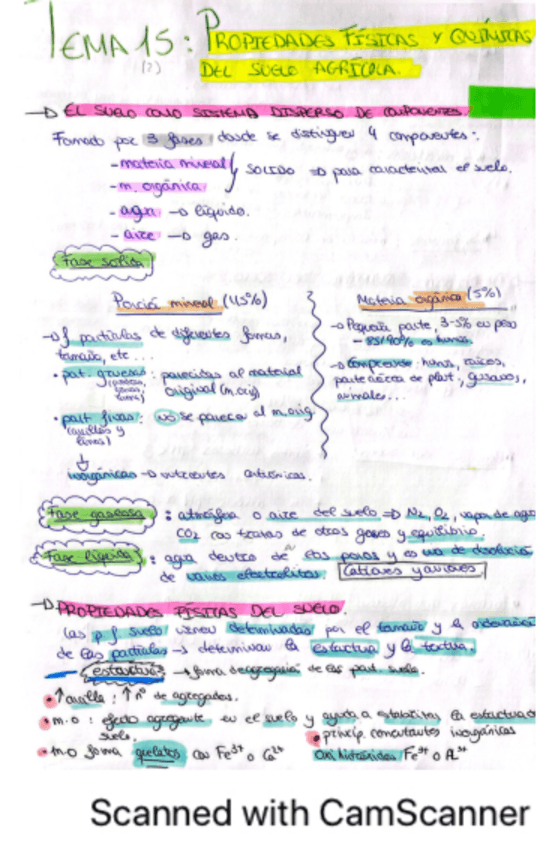 TEMA 15: PROPIEDADES FÍSICAS Y QUÍMICAS
(2)
DEL SUELO AGRÍCOLA.
→ EL SUELO COMO SISTEMA DISPERSO DE COMPONENTES.
Formado por 3 fases donde se distinguen 4 componentes:
- materia mineral
- m. orgánica
SOLIDO ⇒ para caracterizar el suelo.
- agua → líquido.
- aire → gas.
Fase solida
Porción mineral (45%)
→ f partículas de diferentes formas,
tamaño, etc...
• part. gruesas: parecidas al material
original (m. orig)
• part finas: no se parece al m. orig.
(arcillas y
limos)
inorgánicas → nutrientes
Materia orgánica (5%)
→ Pequeña parte, 3-5% en peso
- 85/90% es humus.
→ Comprende: humus, raíces,
parte aérea de plant., gusanos,
animales...
Fase gaseosa: atmósfera o aire del suelo ⇒ N2, O2, vapor de agua
CO2 con trazas de otros gases y equilibrio.
Fase líquida: agua dentro de los poros y es una disolución
de varios electrolitos. Cationes y aniones
→ PROPIEDADES FÍSICAS DEL SUELO.
Las p. f suelo vienen determinadas por el tamaño y la ordenación
de las partículas → determinan la estructura y la textura.
estructura → forma de agregación de las part. suelo.
• ↑ arcilla: ↑ nº de agregados.
• m.o: efecto agregante en el suelo y ayuda a estabilizar la estructura
suelo.
• princip. cementantes inorgánicos
• m.o forma quelatos con Fe3+ o Ca2+
Fe3+ o Al3+
Scanned with CamScanner